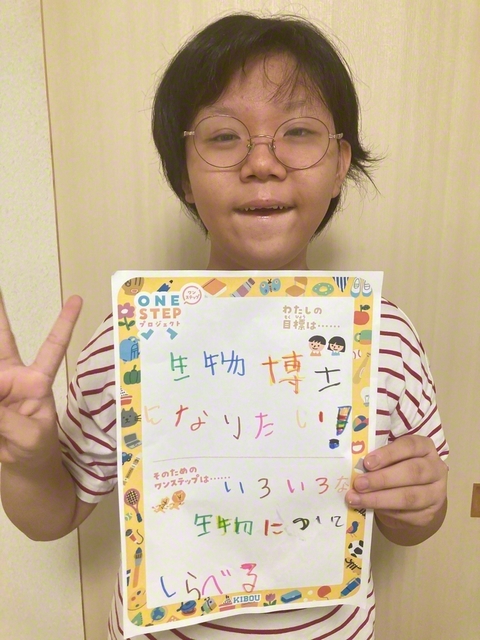 ONE
STEP
プロジェクト
ワンステップ
わたしの
目標は……
もくひょう
生物博士
になりたい!
そのための
ワンステップは……
いろいろな
生物について
しらべる
KIBOU